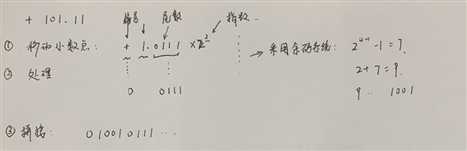 + 101.11
符号 尾数 指数
① 移动小数点: + 1.0111 ×2² → 采用余码存储: 2⁴⁻¹ -1 = 7
② 处理 2+7=9
0 0111 9 1001
③ 拼接: 0 1001 0111 ...